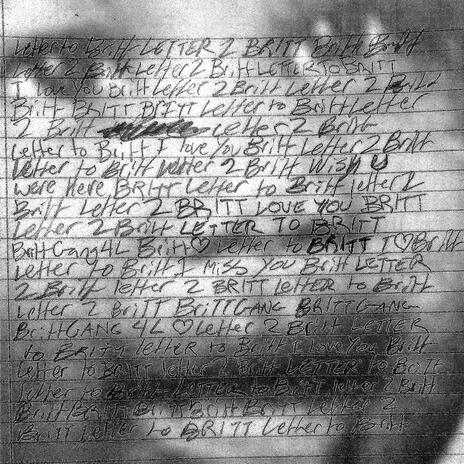 Letter to Britt LETTER 2 BRITT Britt Britt
Letter 2 Britt Letter 2 Britt LETTER TO BRITT
I Love You Britt Letter 2 Britt Letter 2 Britt
Britt BRITT BRITT Letter to Britt Letter
2 Britt Letter 2 Britt
Letter to Britt I Love You Britt Letter 2 Britt
Letter to Britt Letter 2 Britt Wish U
were Here BRITT Letter to Britt letter 2
Britt Letter 2 BRITT LOVE YOU BRITT
Letter 2 Britt LETTER TO BRITT
BrittGang4L Britt♡ Letter to BRITT I♡Britt
Letter to Britt I miss You Britt LETTER
2 Britt letter 2 BRITT LETTER to Britt
Letter 2 BriTT BrittGANG BRITTGANG
BrittGANG 4L ♡ Letter 2 Britt LETTER
to BRITT letter to Britt I Love You Britt
Letter to BRITT letter 2 Britt LETTER to Britt
letter to Britt LETTER to BRITT letter 2 Britt
Britt BRITT Britt Britt Britt Letter 2
BRITT Letter to BRITT Letter to Britt